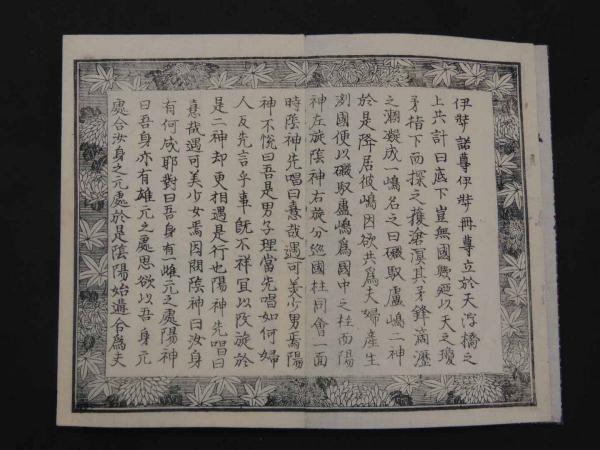 伊弉諾尊伊弉冊尊立於天浮橋之
上共計曰底下豈無國歟廼以天之瓊
矛指下而探之獲滄溟其矛鋒滴瀝
之潮凝成一嶋名之曰磤馭盧嶋二神
於是降居彼嶋因欲共爲夫婦產生
洲國便以磤馭盧嶋爲國中之柱而陽
神左旋陰神右旋分巡國柱同會一面
時陰神先唱曰憙哉遇可美少男焉陽
神不悅曰吾是男子理當先唱如何婦
人反先言乎事既不祥宜以改旋於
是二神却更相遇是行也陽神先唱曰
憙哉遇可美少女焉因問陰神曰汝身
有何成耶對曰吾身有一雌元之處陽神
曰吾身亦有雄元之處思欲以吾身元
處合汝身之元處於是陰陽始遘合爲夫